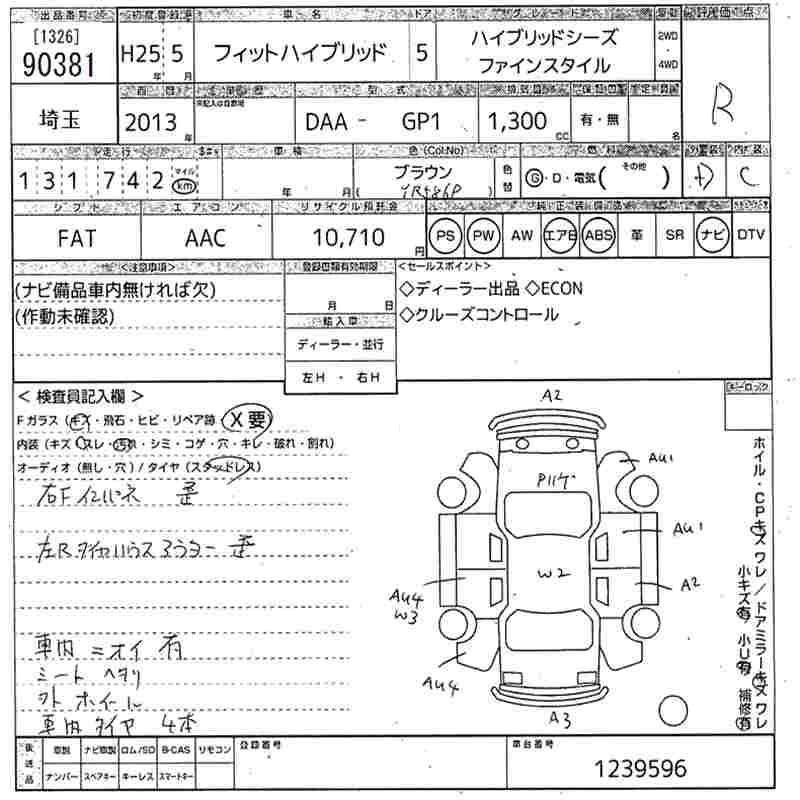 出品番号 初度登録 車名 ドア グレード 評価点
[1326]
90381
H25 年 5 月 フィットハイブリッド 5 ハイブリッドシーズ
ファインスタイル
2WD
・
4WD
R
埼玉 2013 年 DAA - GP1 1,300 CC 有・無 名
走行 車検 色(Col:No) 燃料 外装 内装
131742 マイル km 年 月 ブラウン 色替 G・D・電気( その他 ) D C
シフト エアコン リサイクル預託金 純正装備品
FAT AAC 10,710 円 PS PW AW エアB ABS 革 SR ナビ DTV
<注意事項> 登録書類有効期限 <セールスポイント>
(ナビ備品車内無ければ欠)
(作動未確認)
月 日
輸入車
ディーラー・並行
左H ・ 右H
◇ディーラー出品 ◇ECON
◇クルーズコントロール
キーロック
<検査員記入欄>
Fガラス(キズ・飛石・ヒビ・リペア跡 (X要)
内装(キズ・スレ・汚れ・シミ・コゲ・穴・キレ・破れ・割れ)
オーディオ(無し・穴)/タイヤ(スタッドレス)
右Fインパネ 歪
左Rタイヤハウス アウター 歪
車内 ニオイ 有
シート ヘタリ
外 ホイール
車内 タイヤ 4本
A2
AU1
AU1
W2
A2
AU4
W3
AU4
A3
ホイル・CPキズ ワレ/ドアミラーキズ ワレ
小キズ有 小U有 補修有
後送品 車検 ナビ車載 ロム/SD B-CAS リモコン
ナンバー スペアキー キーレス スマートキー
登録番号 車台番号
1239596